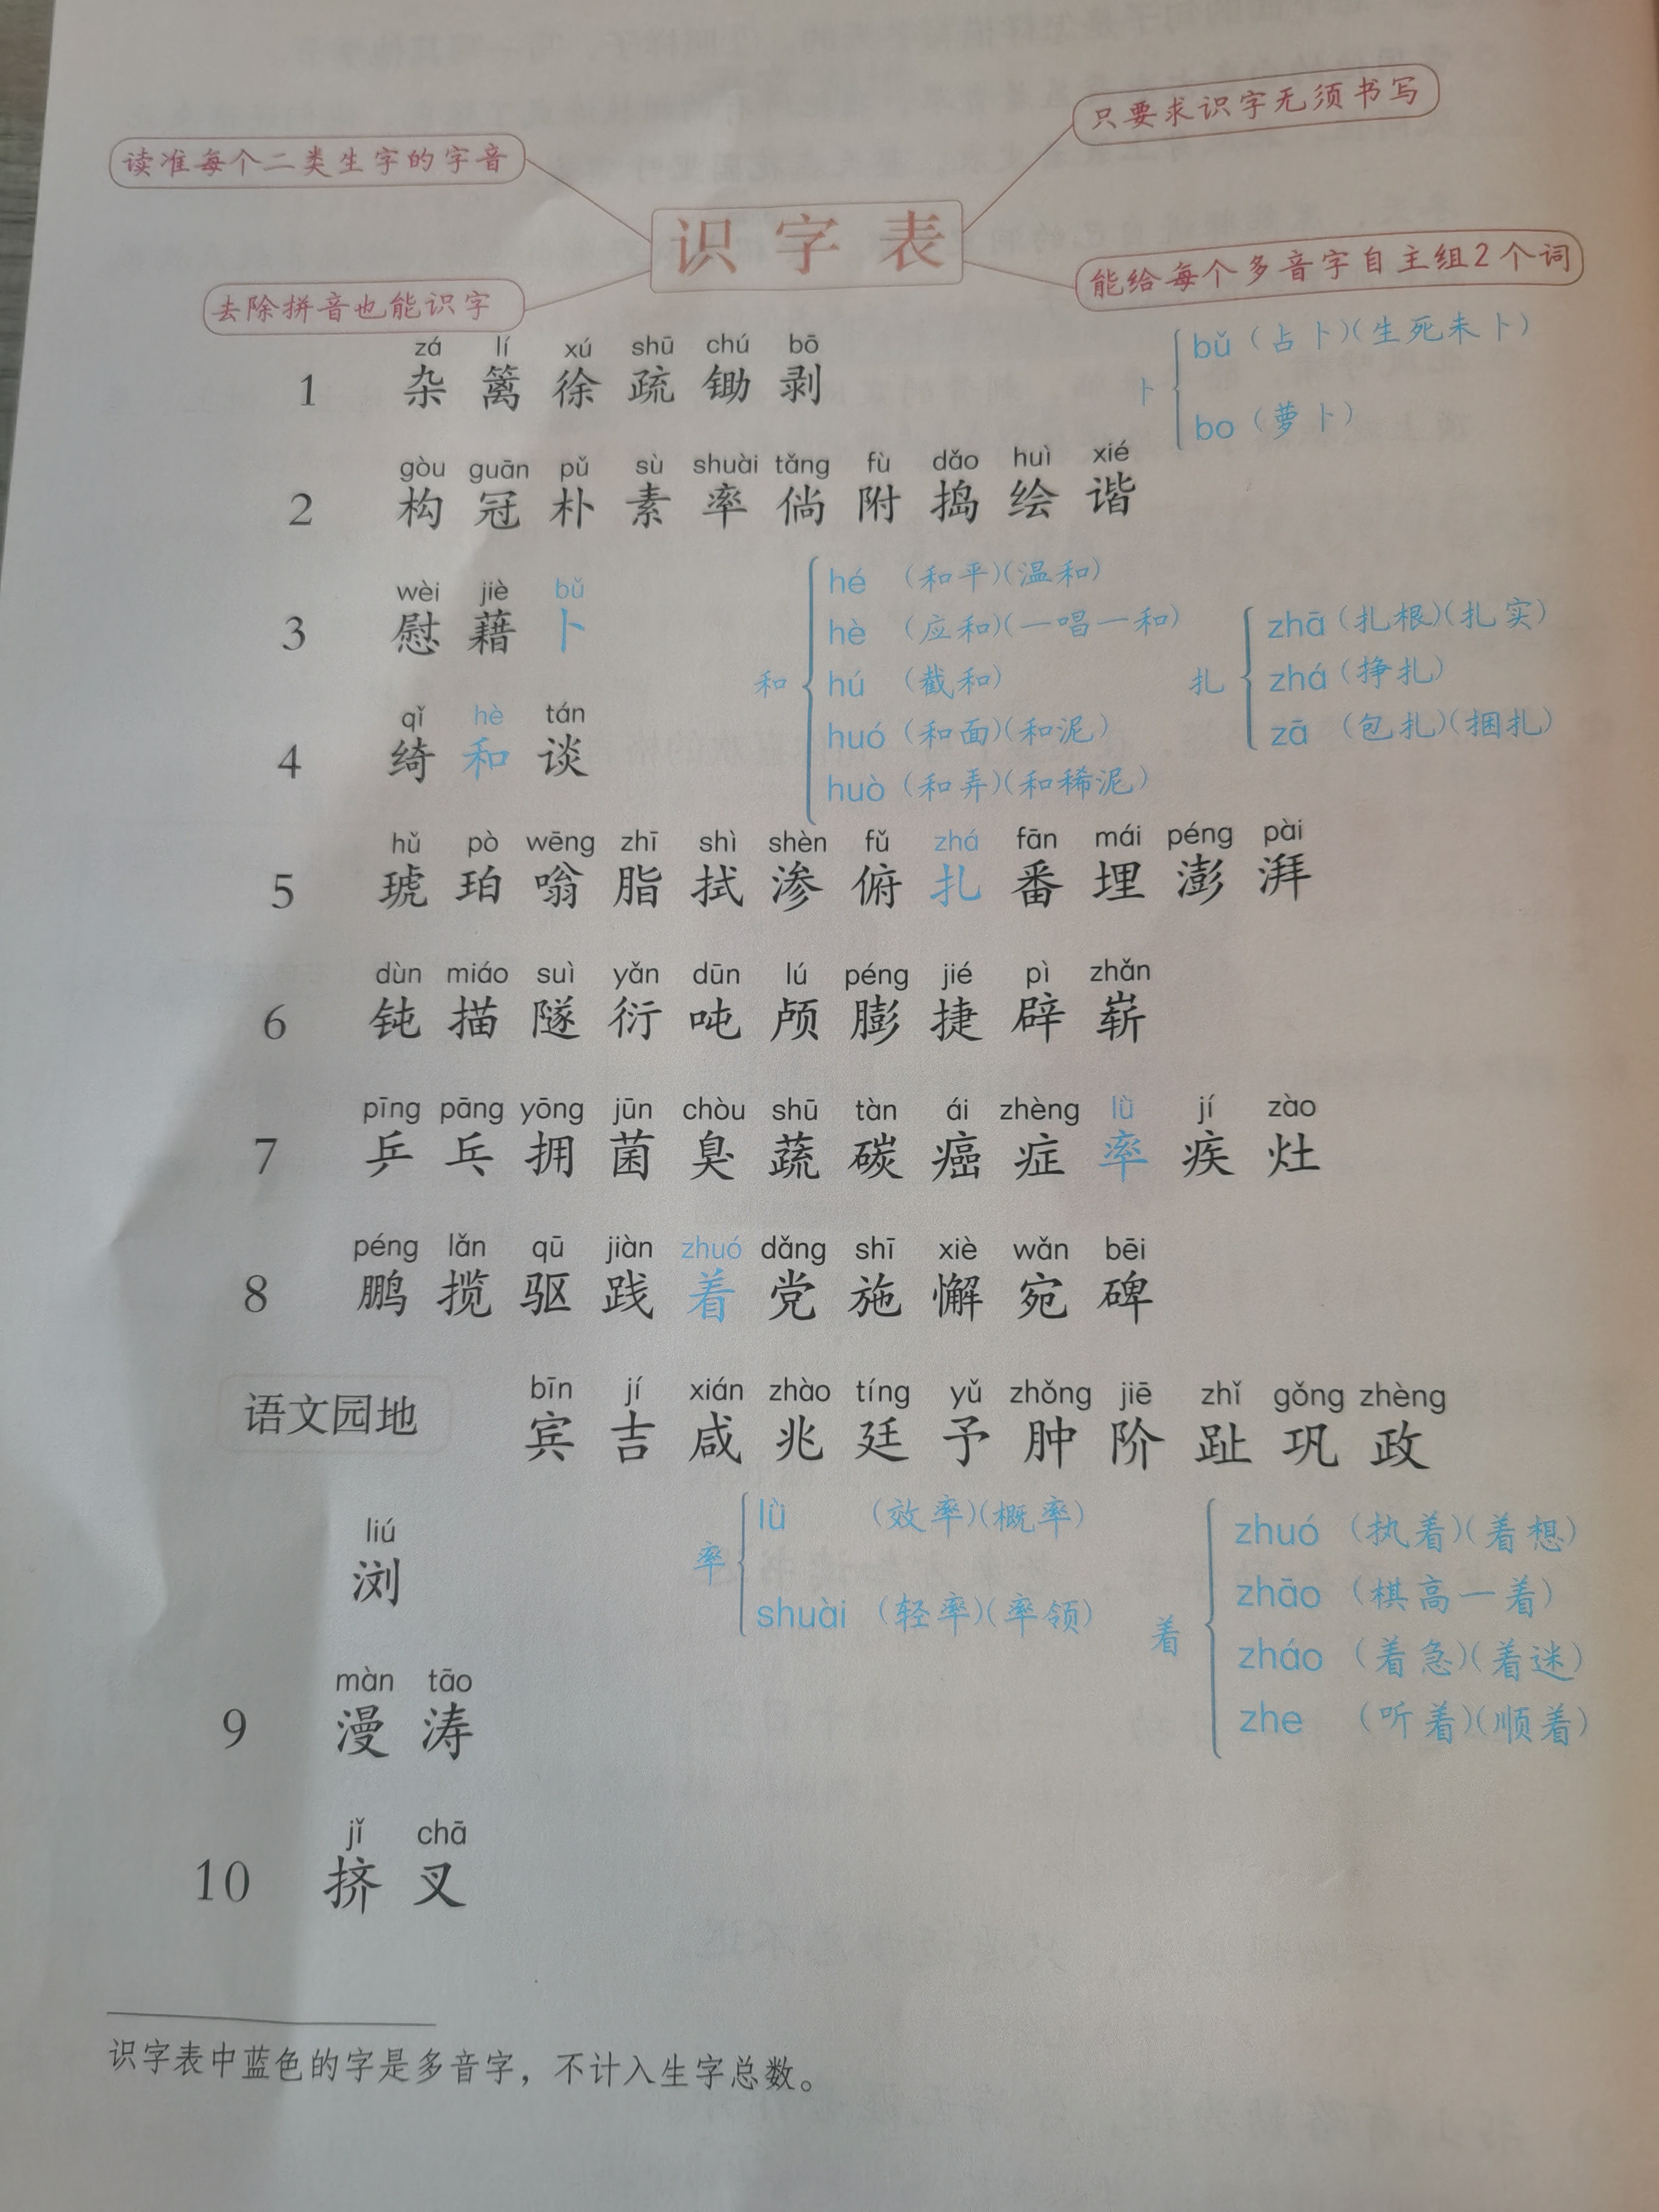 只要求识字无须书写
读准每个二类生字的字音
识字表
能给每个多音字自主组2个词
去除拼音也能识字
zá lí xú shū chú bō
1 杂 篱 徐 疏 锄 剥
卜
bǔ（占卜）（生死未卜）
bo（萝卜）
gòu guān pǔ sù shuài tǎng fù dǎo huì xié
2 构 冠 朴 素 率 倘 附 捣 绘 谐
wèi jiè bǔ
3 慰 藉 卜
qǐ hè tán
4 绮 和 谈
和
hé（和平）（温和）
hè（应和）（一唱一和）
hú（截和）
huó（和面）（和泥）
huò（和弄）（和稀泥）
扎
zhā（扎根）（扎实）
zhá（挣扎）
zā（包扎）（捆扎）
hǔ pò wēng zhī shì shèn fǔ zhá fān mái péng pài
5 琥 珀 嗡 脂 拭 渗 俯 扎 番 埋 澎 湃
dùn miáo suì yǎn dūn lú péng jié pì zhǎn
6 钝 描 隧 衍 吨 颅 膨 捷 辟 崭
pīng pāng yōng jūn chòu shū tàn ái zhèng lǜ jí zào
7 乒 乓 拥 菌 臭 蔬 碳 癌 症 率 疾 灶
péng lǎn qū jiàn zhuó dǎng shī xiè wǎn bēi
8 鹏 揽 驱 践 着 党 施 懈 宛 碑
bīn jí xián zhào tíng yǔ zhǒng jiē zhǐ gǒng zhèng
语文园地 宾 吉 咸 兆 廷 予 肿 阶 趾 巩 政
liú
浏
率
lǜ（效率）（概率）
shuài（轻率）（率领）
着
zhuó（执着）（着想）
zhāo（棋高一着）
zháo（着急）（着迷）
zhe（听着）（顺着）
màn tāo
9 漫 涛
jǐ chā
10 挤 叉
识字表中蓝色的字是多音字，不计入生字总数。